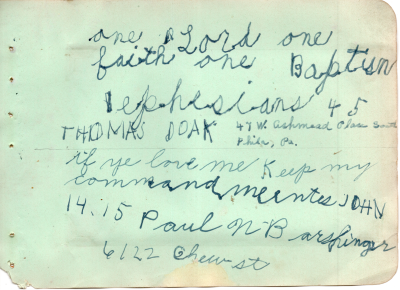 one Lord one
faith one Baptism
Iephisians 4 5
THOMAS DOAK 47 W. Ashmead Place South
Phila, Pa.
if ye love me Keep my
command meentes JOHN
14:15 Paul N Barshinger
6122 Chew st